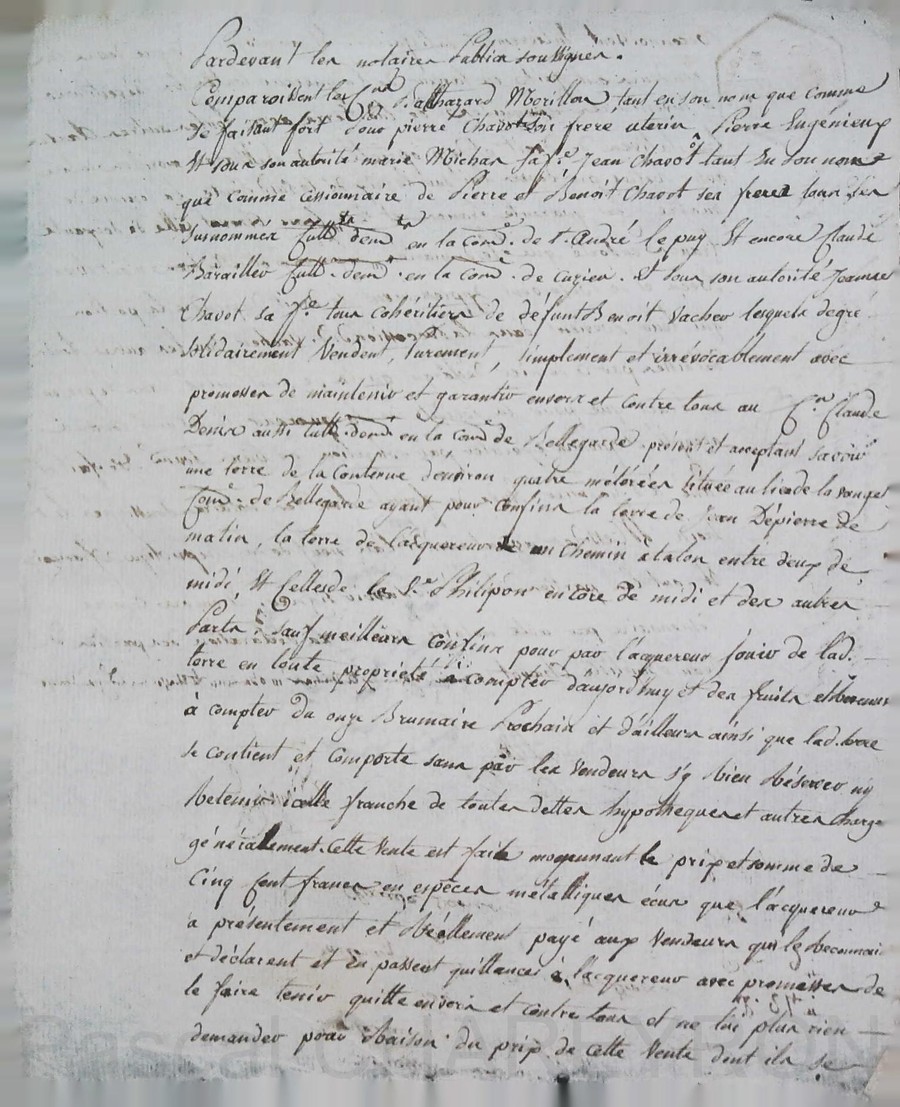 Pardevant les notaires Publics soussignés.
Comparoissent les C.ens Balthazard Morillon tant en son nom que comme
se faisant fort pour pierre Chavot son frere uterin Pierre Eugénieux
Et sous son autorité marie Michas sa f.e Jean Chavot tant En son nom
que comme cessionnaire de Pierre et Benoit Chavot ses freres tous les
susnommés Cult.rs dem.ts en la com.e de St. André le puy Et encore Claude
Baraillev Cult. dem.t en la com.e de Cuzieu. Et sous son autorité Jeanne
Chavot sa f.e tous cohéritiers de défunt Benoit Vachev lesquels degré
solidairement Vendent, purement, simplement et irrévocablement avec
promesses de maintenir et garantir envers et contre tous au C.en Claude
Denis aussi Cult. dem.t en la com.e de Bellegarde présent et acceptant savoir
une terre de la Contenue d'environ quatre méterées Située au lieu de la vauge
Com.e de Bellegarde ayant pour Confins la terre de Jean Dépierre de
matin, la terre de l'acquereur un Chemin à talon entre deux de
midi, Et Celles de le S.r Philipon encore de midi et des autres
Parts, sauf meilleurs Confins pour par l'acquereur jouir de lad.
terre en toute propriété à compter d'aujord'huy et des fruits et Revenus
à compter du onze Brumaire Prochain et d'ailleurs ainsi que lad. terre
se contient et Comporte sans par les Vendeurs s'y bien Réserver ny
Retenir icelle franche de toutes dettes hypotheques et autres Charge
généralement. Cette Vente est faite moyennant le prix et somme de
Cinq Cent francs en espèces métalliques écus que l'acquereur
a présentement et Réellement payé aux Vendeurs qui le Reconnai
et déclarent et En passent quittances à l'acquereur avec promesses de
le faire tenir quitte envers et contre tous et ne lui plus rien
demander pour Raison du prix de Cette Vente dont ils se